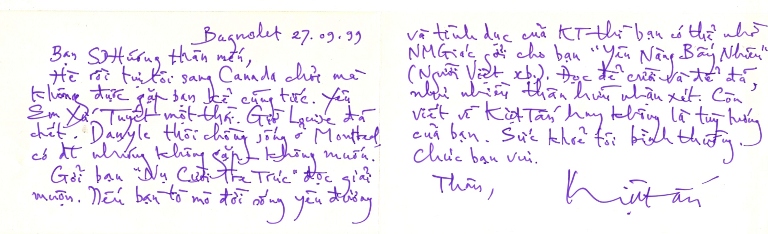 Bagnolet 27.09.99
Bạn SĐHương thân mến,
Hè rồi tụi tôi sang Canada chơi mà
không được gặp bạn kể cũng tức. Yến
Em Xá Tuyết một thá. Gờ Louise đã
chết. Danyle thôi chồng sống ở Montreal
có đt nhưng không gặp - không muốn.
Gởi bạn "Nụ Cười Tre Trúc" đọc giải
muộn. Nếu bạn tò mò đời sống yêu đương
và tình dục của KT thì bạn có thể nhờ
NMGiác gởi cho bạn "Yên Nàng Bấy Nhiêu"
(Người Việt xb.). Đọc để cười và để đá,
như nhiều thân hữu nhận xét. Còn
viết về Kiệt Tấn hay không là tùy hứng
của bạn. Sức khoẻ tôi bình thường.
Chúc bạn vui.
Thân,
Kiệt Tấn